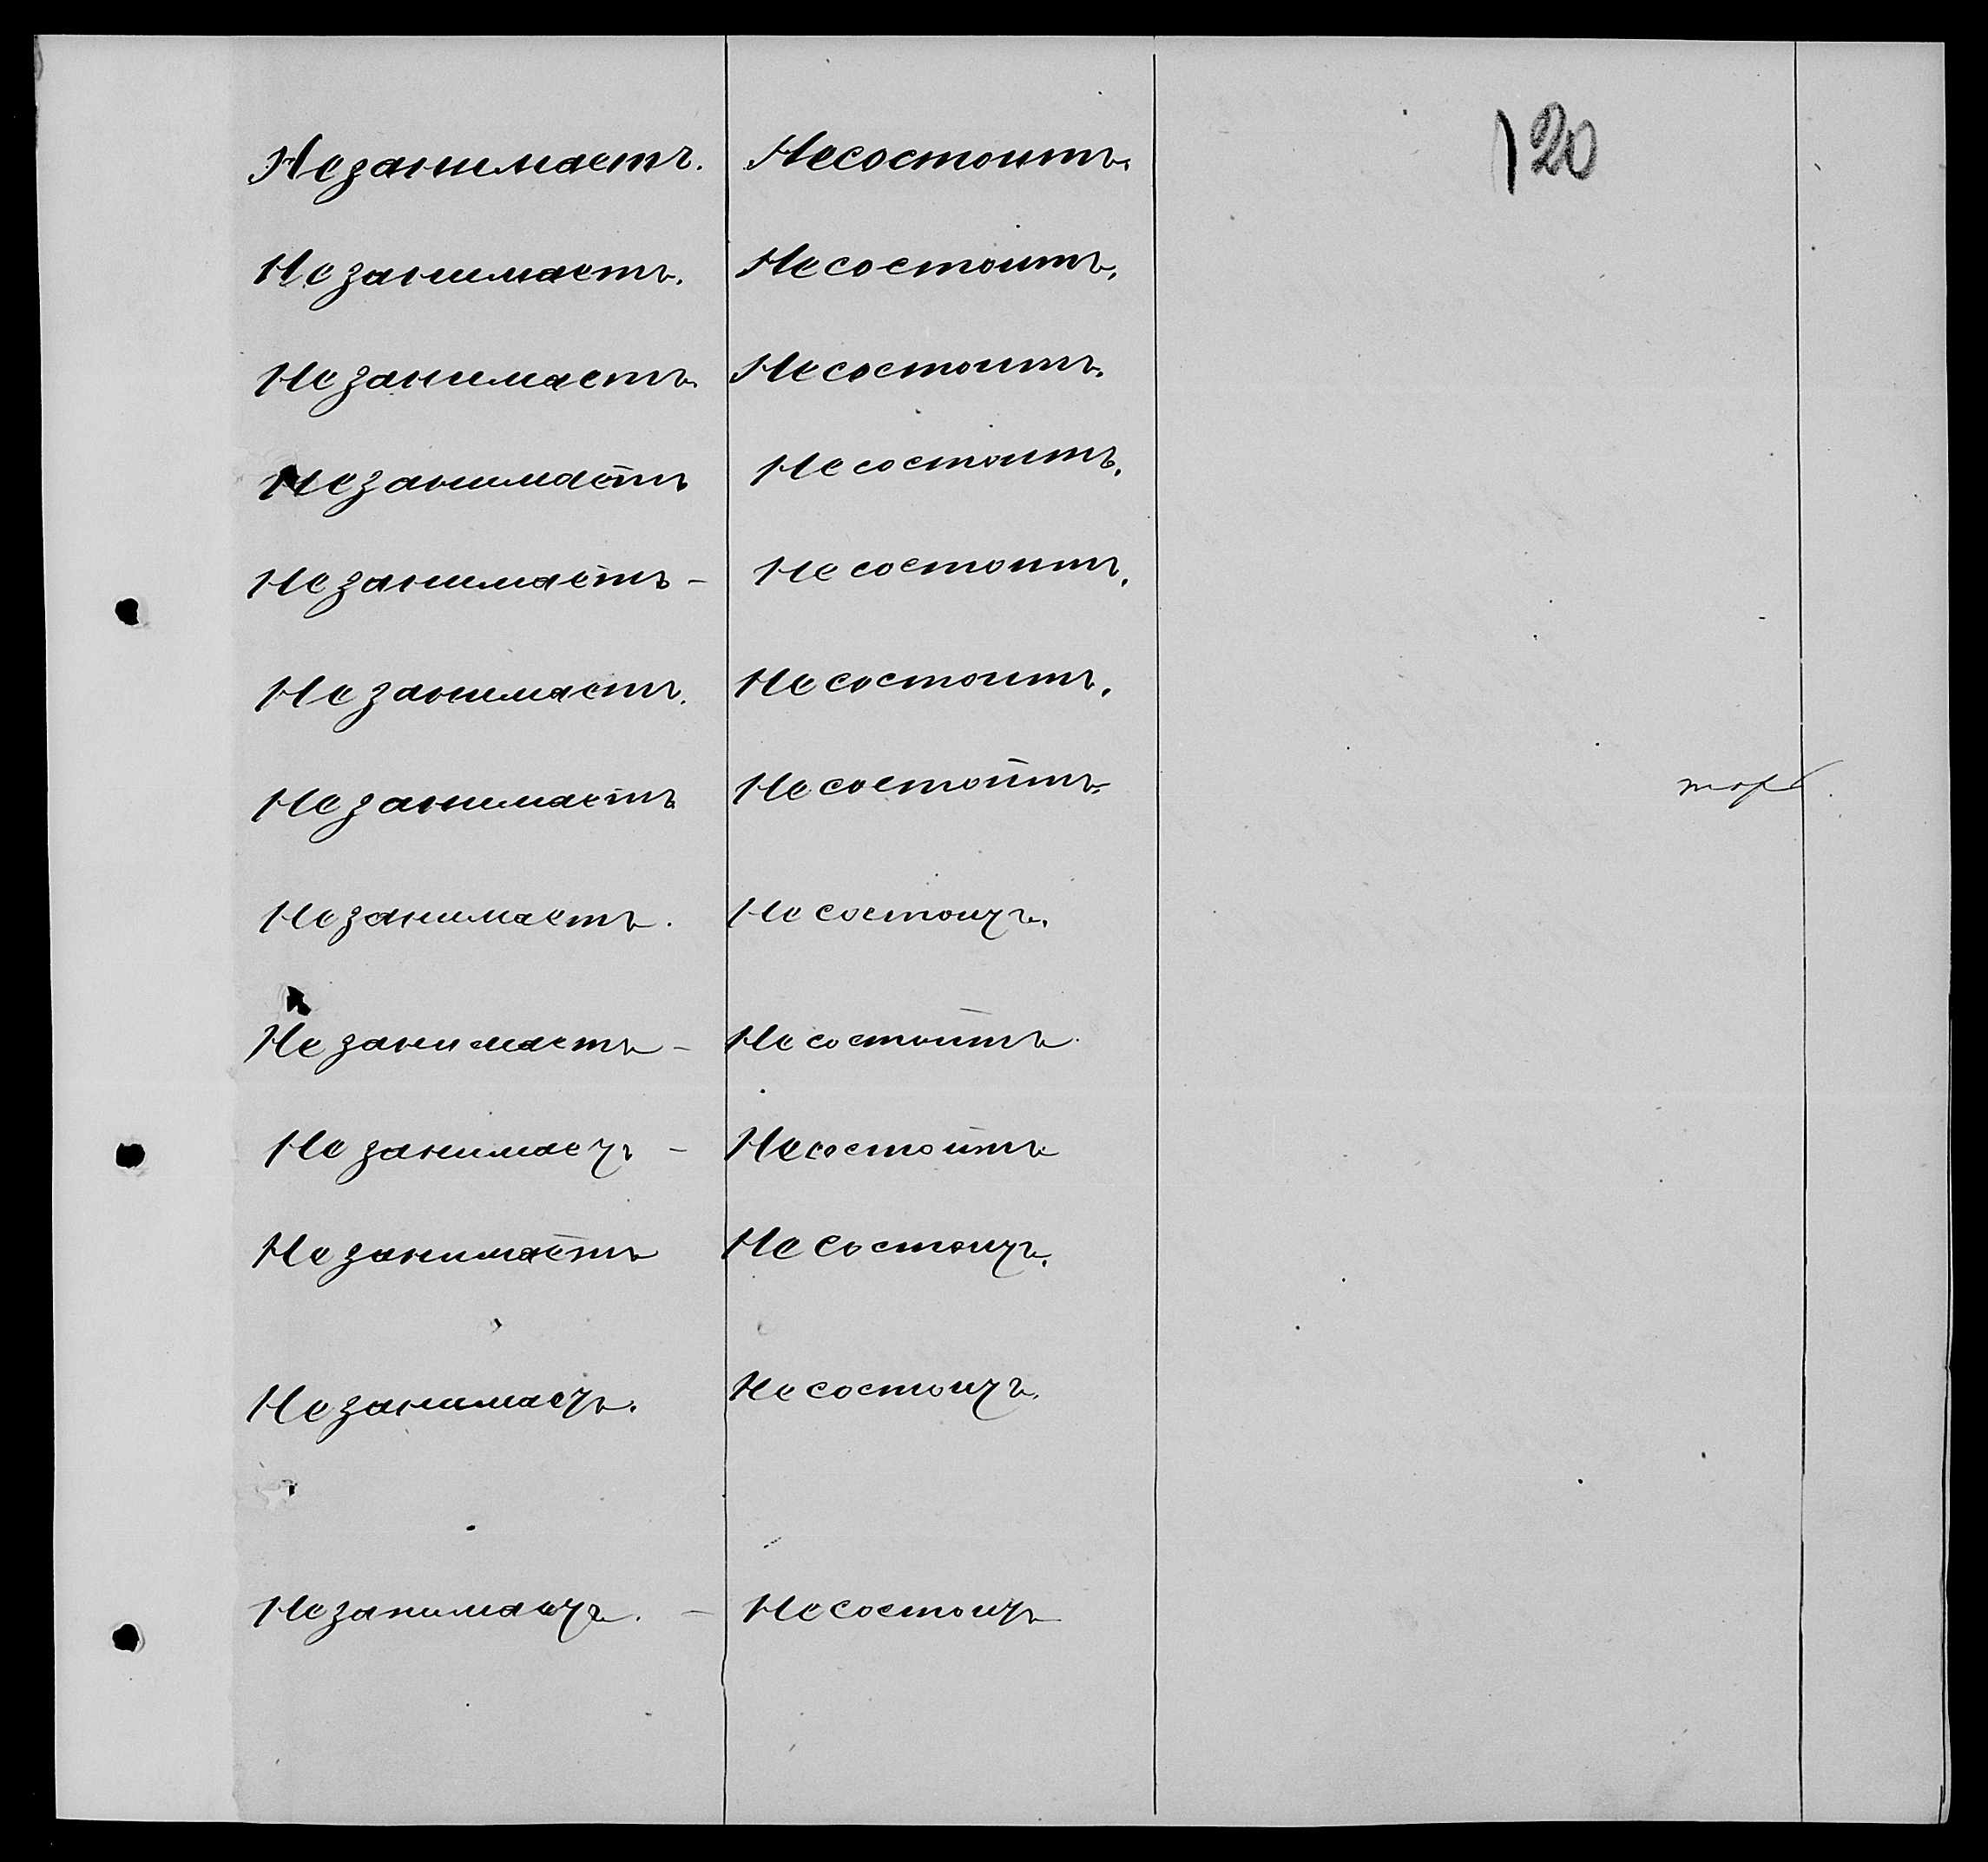 120
Не занимаетъ. Не состоитъ.
Не занимаетъ. Не состоитъ.
Не занимаетъ. Не состоитъ.
Не занимаетъ Не состоитъ.
Не занимаетъ - Не состоитъ.
Не занимаетъ. Не состоитъ.
Не занимаетъ Не состоитъ.
Не занимаетъ. Не состоитъ.
Не занимаетъ - Не состоитъ.
Не занимаетъ - Не состоитъ
Не занимаетъ Не состоитъ.
Не занимаетъ. Не состоитъ.
Не занимаетъ. - Не состоитъ